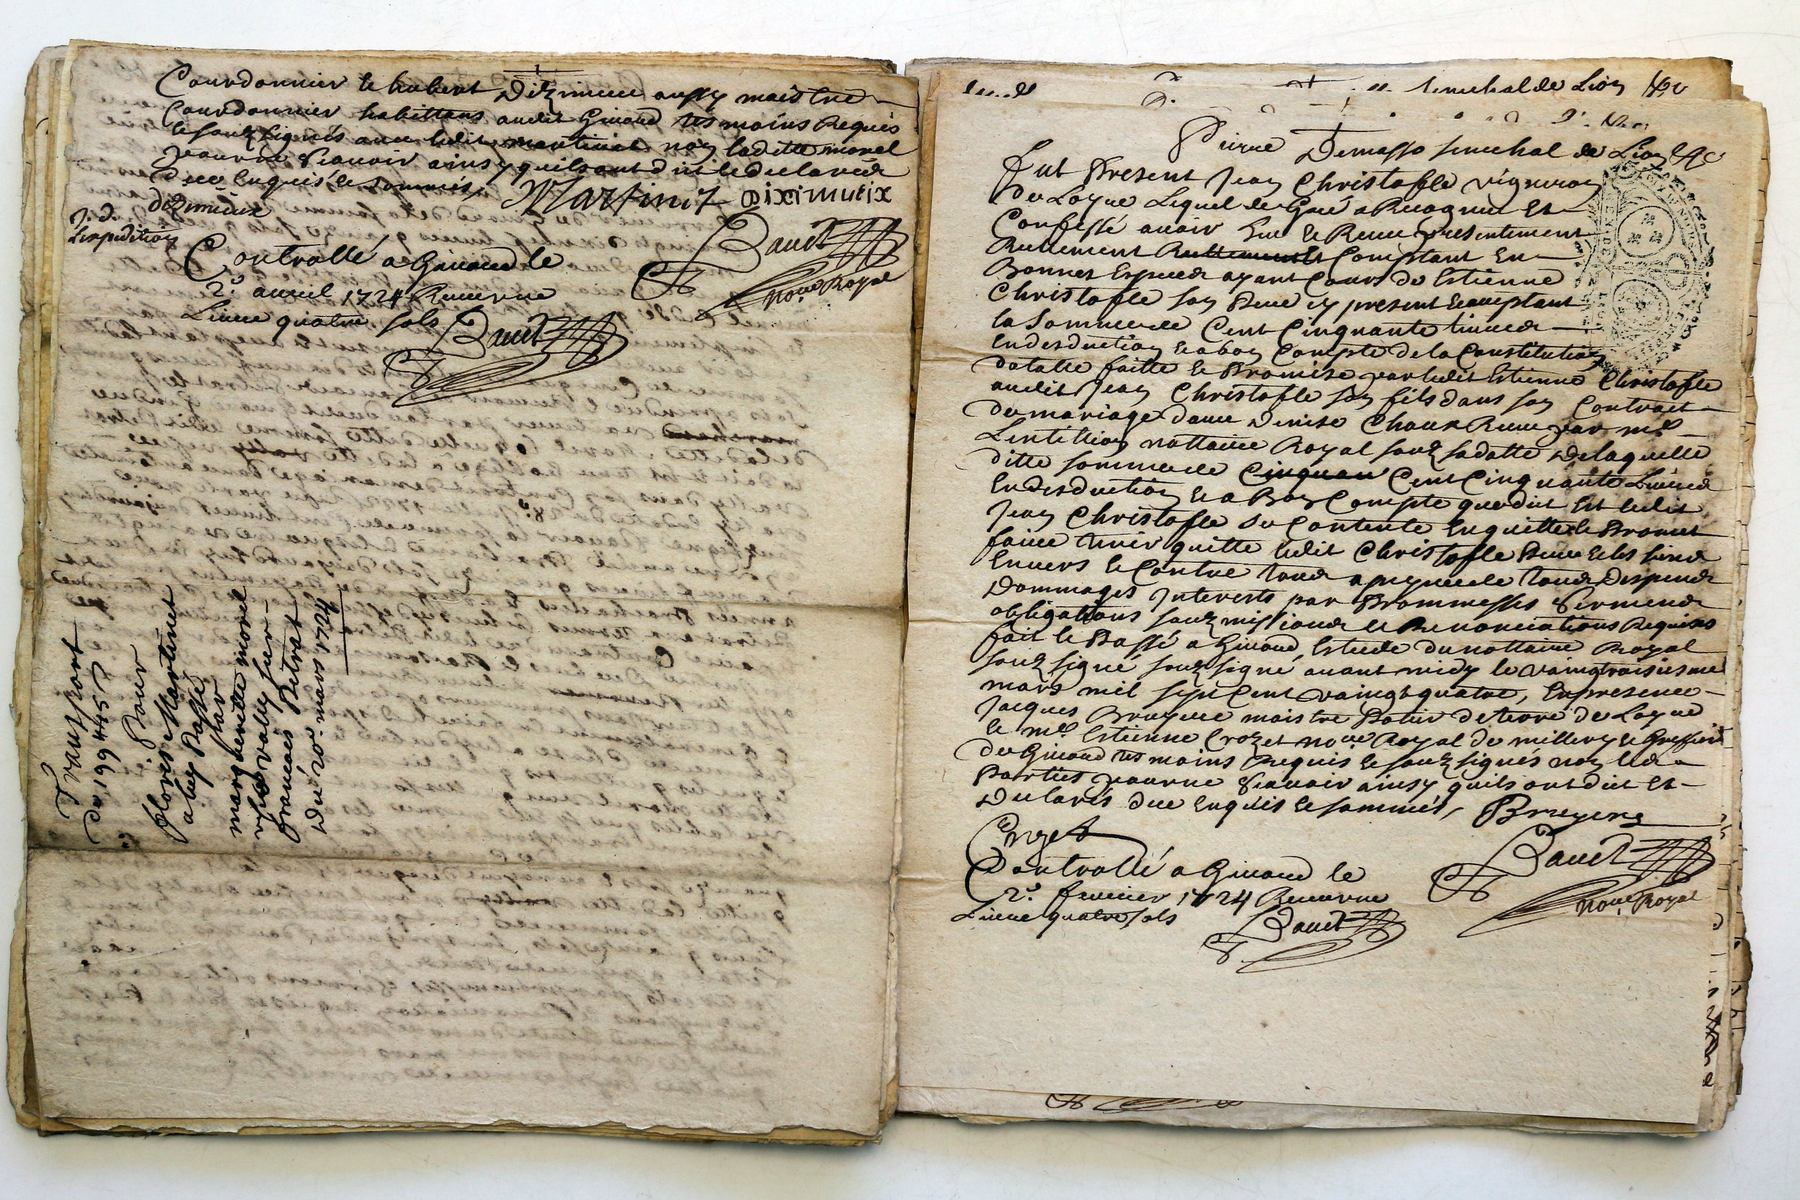 Courdonnier et hubert Dizimieu aussy maistre
Courdonnier habittans audit Givord tesmoins Requis
et souz signés avec ledit martinet non laditte morel
pour ne sçavoir ainsy quils ont dit et declarés
de ce Enquis et sommés, Martinet DIXIMIEIX
dizimieux
J. d.
L'expedition
Baud
Controllé a Givord le
2e. avril 1724 Receu une
Livre quatre sols
nore. Royal
Baud
Transport
de 199 ₶ 4 s 5 d
Pour
fleuris Martinet
a luy Passé
par
margueritte morel
vefve vally sur
françois Pitrat
Du 20e mars 1724
senechal de Lion
Pierre Demasso senechal de Lion &c
fut Present Jean Christofle vigneron
de Loyre Lequel de Gré a Recognu Et
Confessé avoir Eu et Receu presentement
Reellement Comptant En
Bonnes Especes ayant Cours de Estienne
Christofle son Pere icy present acceptant
la somme de Cent Cinquante Livres
En desduction et a bon Compte de la Constitution
dotalle faitte et Promise par ledit Estienne Christofle
audit Jean Christofle son fils dans son Contract
de mariage avec Denise Chaux Receu par me
Lentillion nottaire Royal souz sa datte De laquelle
ditte somme de cinquan Cent Cinquante Livres
En desduction et a Bon Compte que dit Est ledit
Jean Christofle se Contente En quitte et Promet
faire tenir quitte ledit Christofle Pere et les siens
Envers et Contre tous a peyne de tous Despens
Dommages Interests par Prommesses Serments
obligations souzmissions et Renonciations Requises
fait et Passé a Givord Estude du nottaire Royal
souz signé souz signé avant midy le vaingtroisiesme
mars mil sept Cent vaingt quatre, En presence
Jacques Bruyere maistre Potier de terre de Loyre
et me Estienne Crozet nore Royal de millery et Greffier
de Givord tesmoins Requis et souz signés non lesd.
Parties pour ne sçavoir ainsy quils ont dit et
Declarés de ce Enquis et sommés, Bruyere
Crozet
Baud
Controllé a Givord le
2e. fevrier 1724 Receu une
Livre quatre sols
nore. Royal
Baud